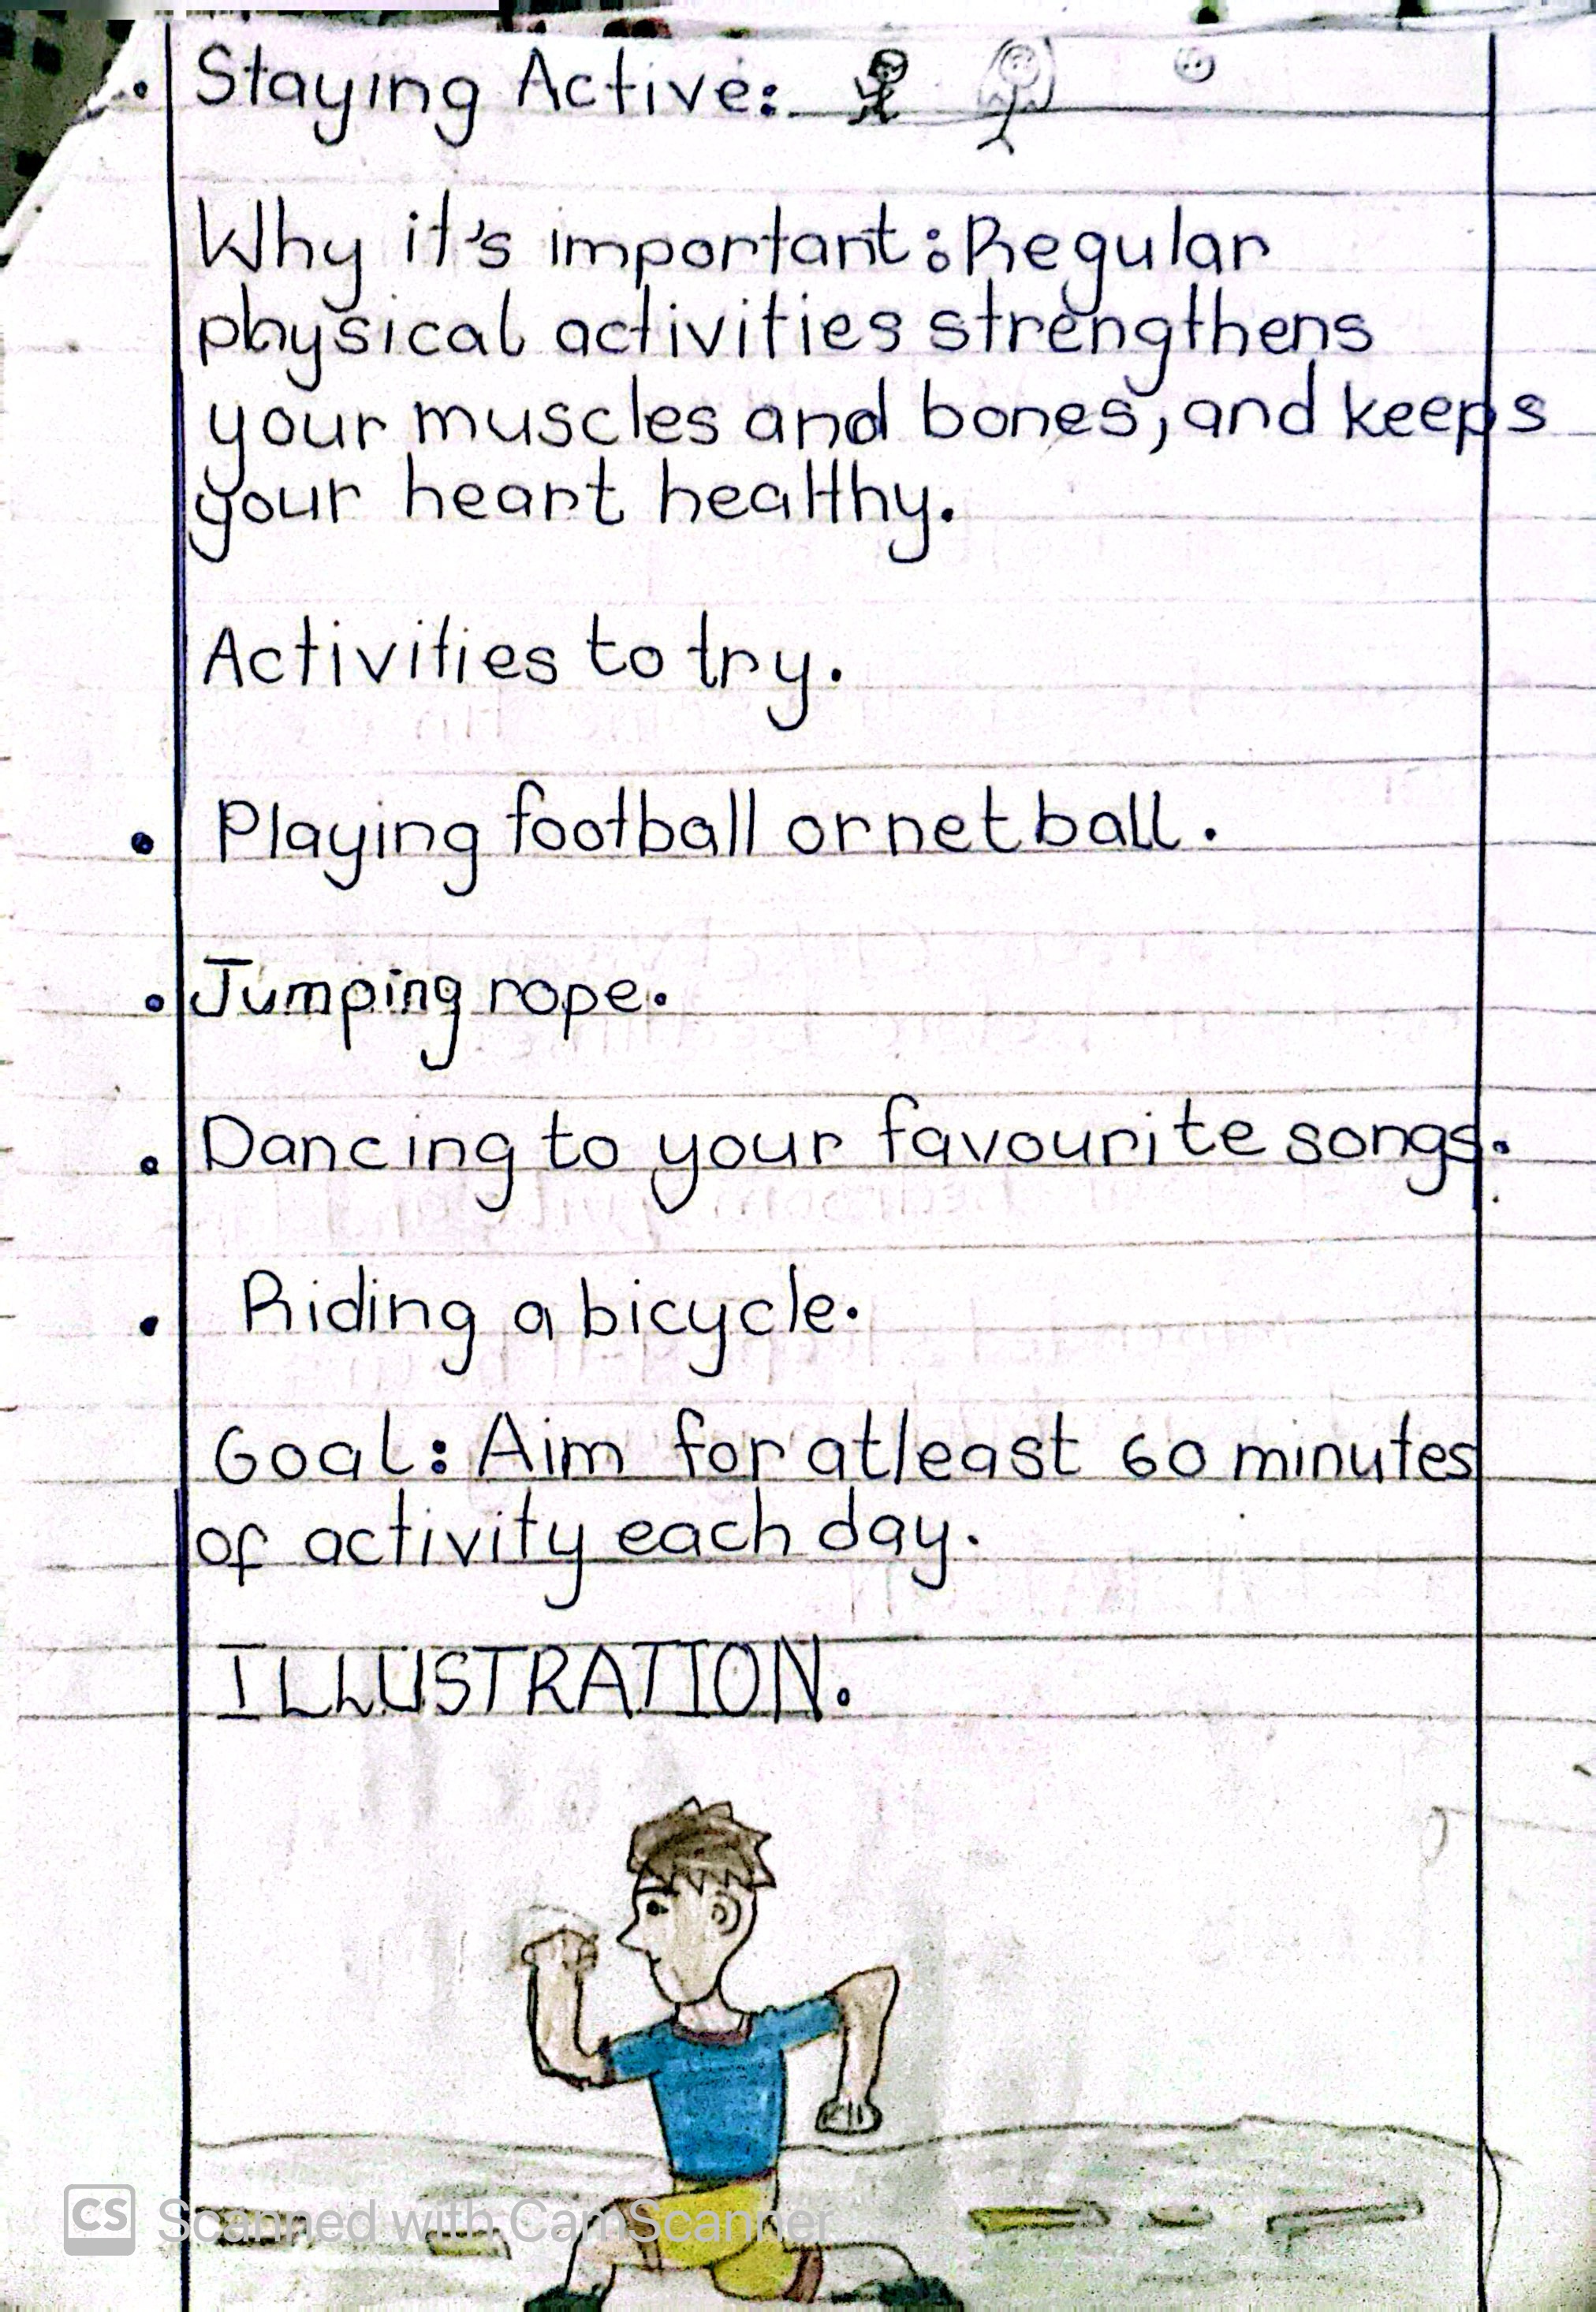 • Staying Active:
Why it's important: Regular
physical activities strengthens
your muscles and bones, and keeps
your heart healthy.
Activities to try.
• Playing football or netball.
• Jumping rope.
• Dancing to your favourite songs.
• Riding a bicycle.
Goal: Aim for atleast 60 minutes
of activity each day.
ILLUSTRATION.
CS Scanned with CamScanner